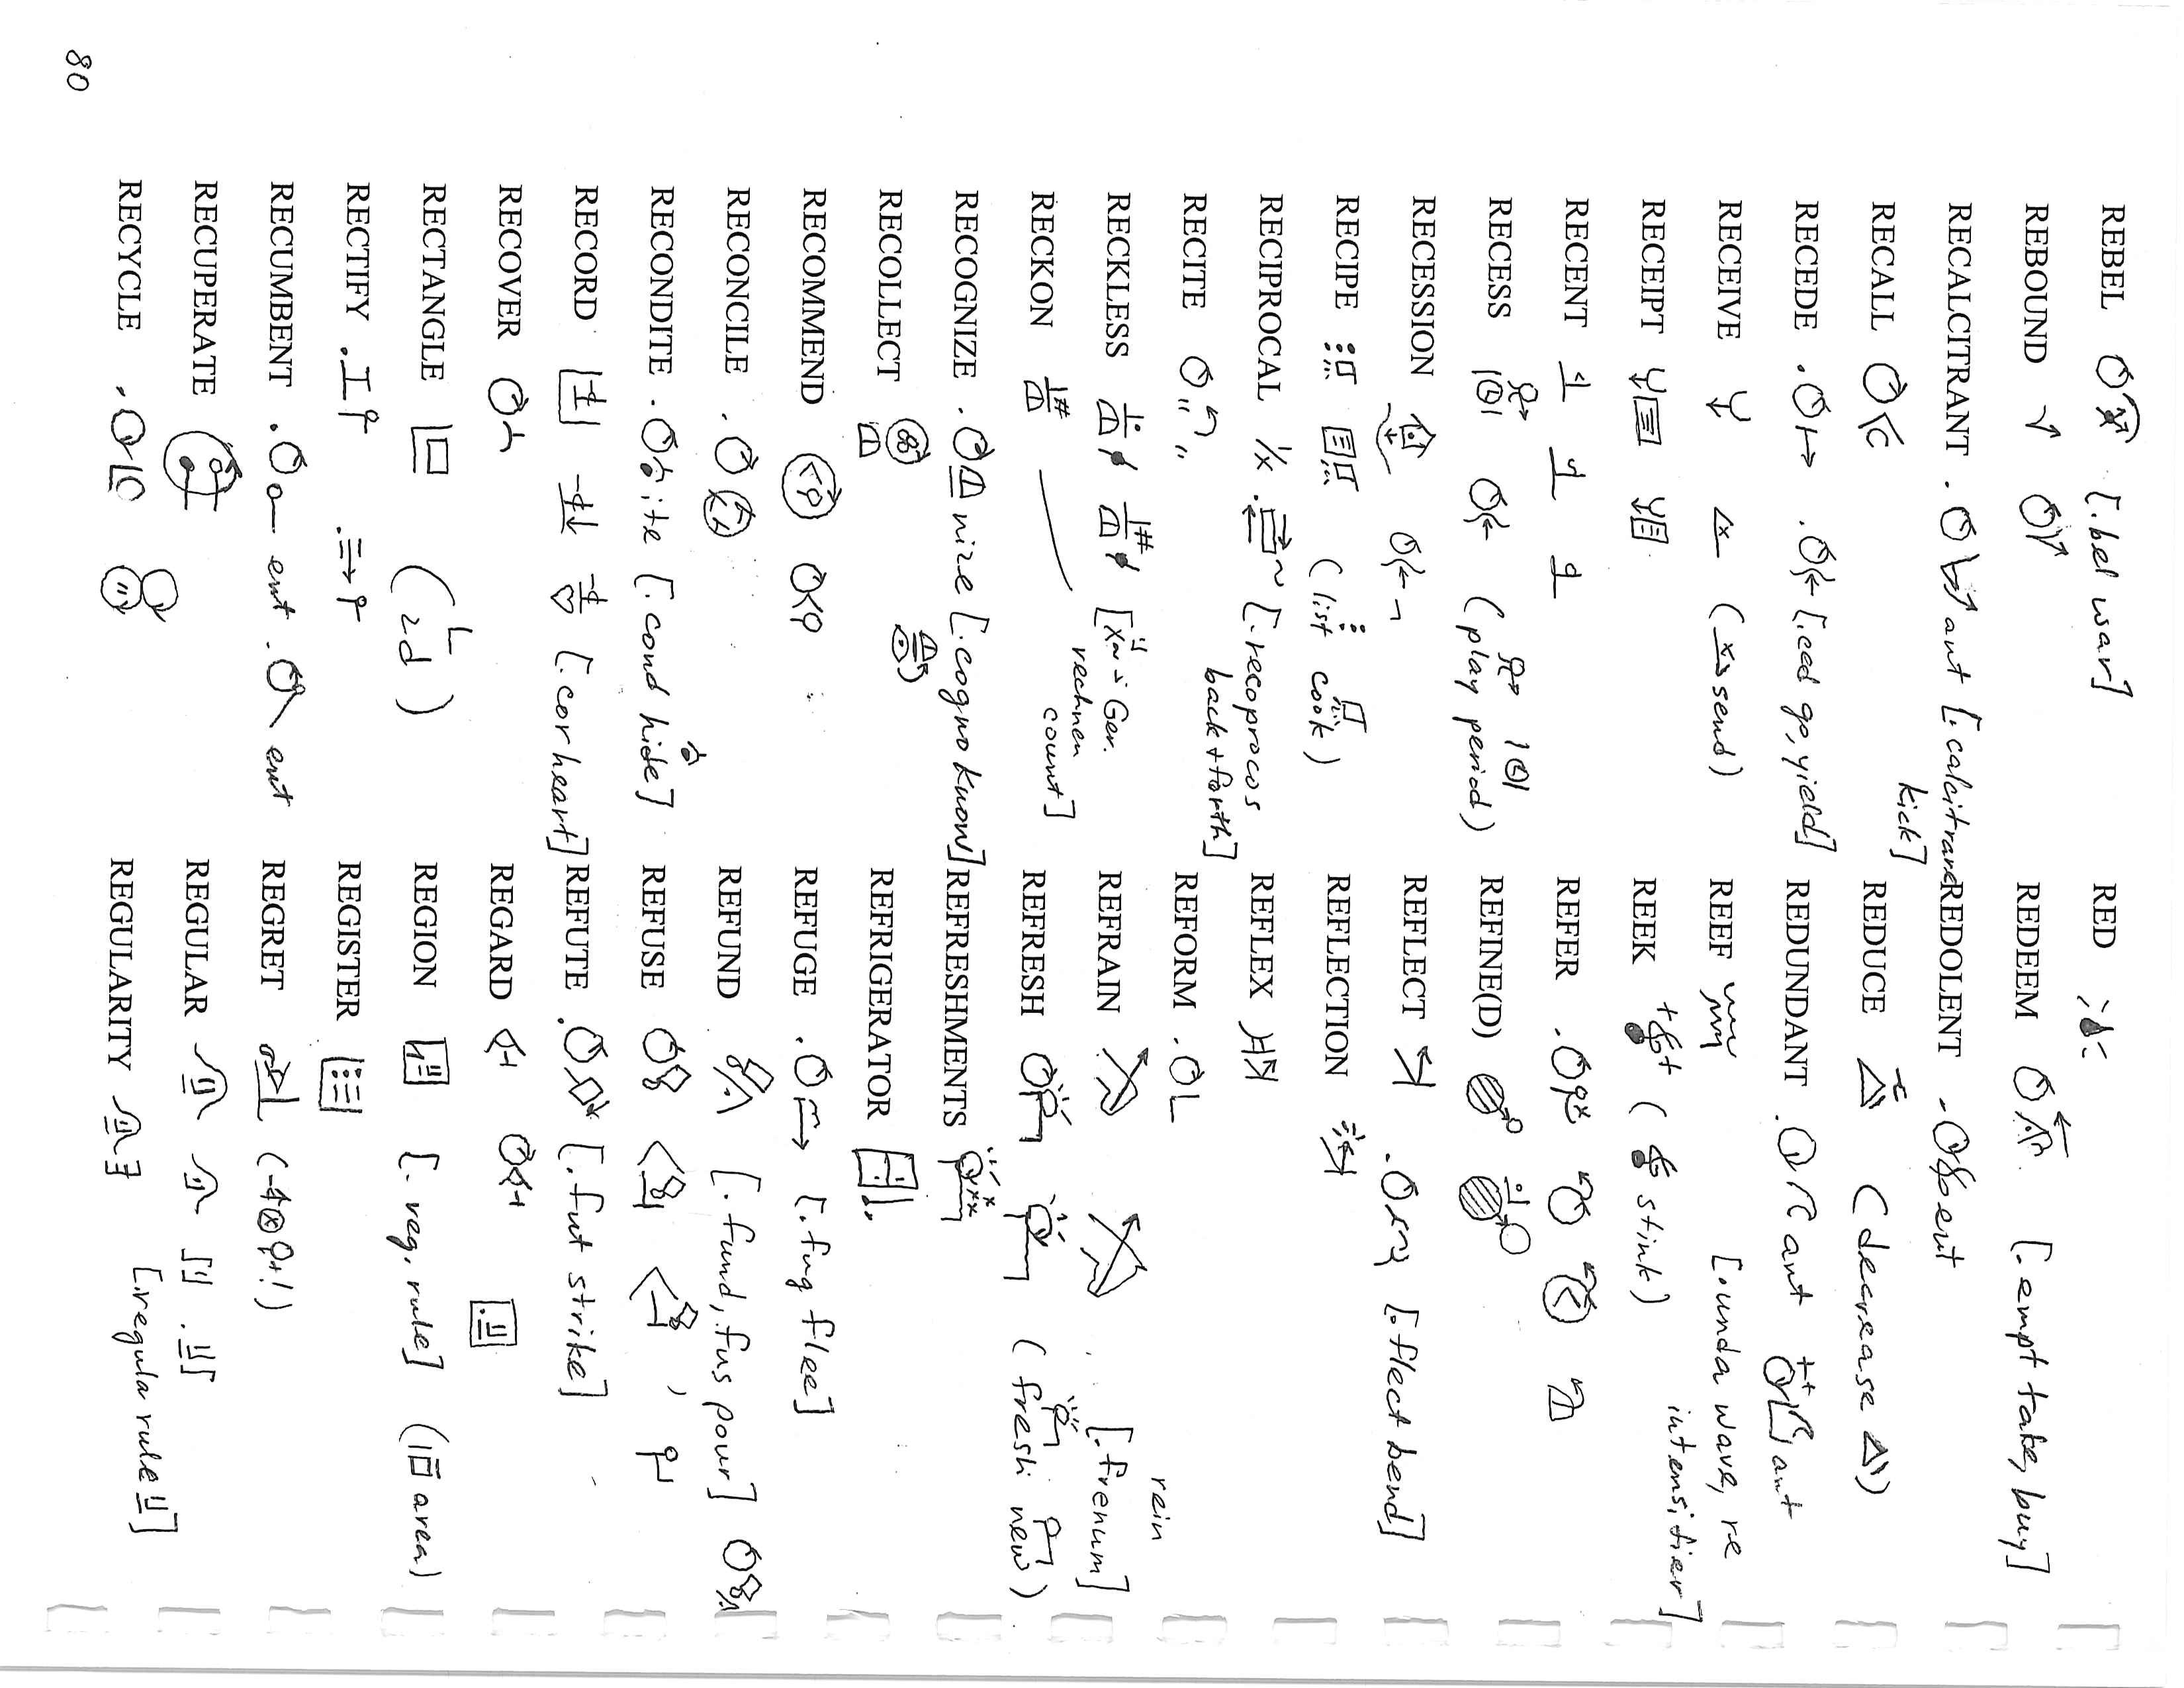 REBEL [.bel war]
REBOUND
RECALCITRANT . ant [.calcitrare kick]
RECALL
RECEDE . . [.ced go, yield]
RECEIVE (send)
RECEIPT
RECENT
RECESS (play period)
RECESSION
RECIPE (list cook)
RECIPROCAL 1/x [.recoprocos back + forth]
RECITE
RECKLESS [Ger. rechnen count]
RECKON
RECOGNIZE . nize [.cogno know]
RECOLLECT
RECOMMEND
RECONCILE .
RECONDITE . ite [.cond hide]
RECORD [.cor heart]
RECOVER
RECTANGLE (2d)
RECTIFY .
RECUMBENT . ent . ent
RECUPERATE
RECYCLE .
RED
REDEEM [.empt take, buy]
REDOLENT . ent
REDUCE (decrease)
REDUNDANT . ant ant
REEF [.unda wave, re intensifier]
REEK (stink)
REFER .
REFINE(D)
REFLECT . [.flect bend]
REFLECTION
REFLEX
REFORM .
REFRAIN [.frenum] rein
REFRESH (fresh new)
REFRESHMENTS
REFRIGERATOR
REFUGE . [.fug flee]
REFUND [.fund, .fus pour]
REFUSE ,
REFUTE . [.fut strike]
REGARD
REGION [.reg, rule] (area)
REGISTER
REGRET
REGULAR
REGULARITY [.regula rule]
80